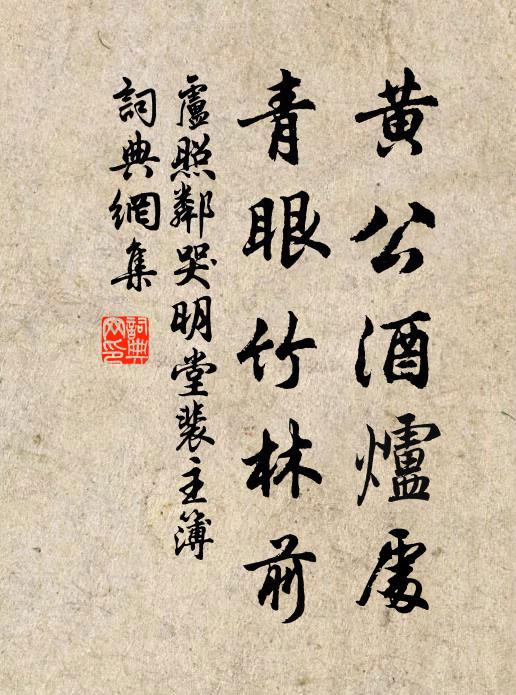 黄公酒爐處
青眼竹林前
盧照鄰哭明堂裴主簿
詞典網集
詞典网印